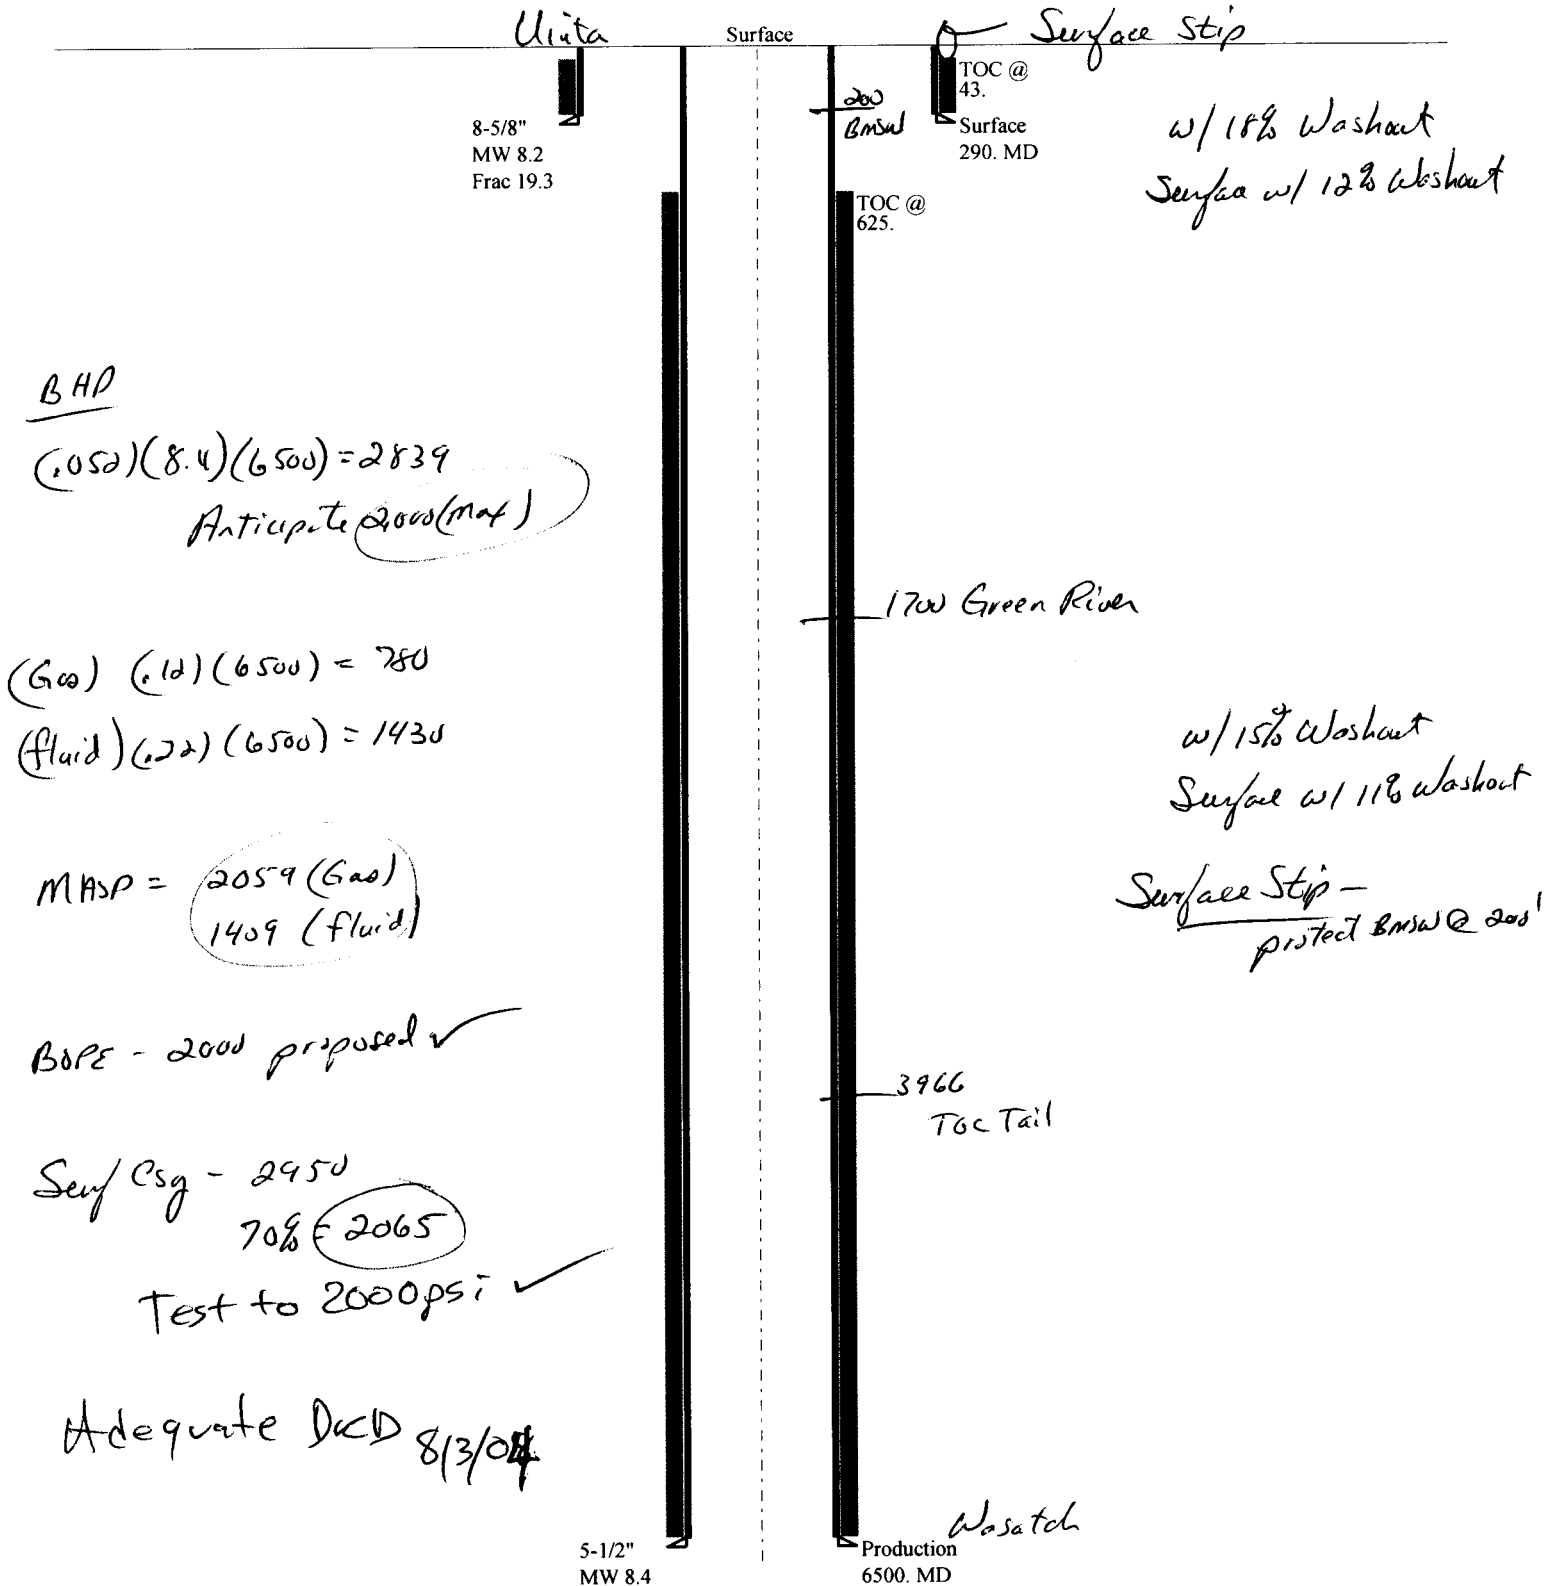 Uinta
Surface
Surface Stip
TOC @
43.
200
BMSW
8-5/8"
MW 8.2
Frac 19.3
Surface
290. MD
w/ 18% Washout
Surface w/ 12% Washout
TOC @
625.
BHP
(.052)(8.4)(6500) = 2839
Anticipate 2000 (max)
1700 Green River
(Gas) (.12)(6500) = 780
(fluid)(.22)(6500) = 1430
w/ 15% Washout
Surface w/ 11% Washout
MASP = 2059 (Gas)
1409 (fluid)
Surface Stip -
protect BMSW @ 200'
BOPE - 2000 proposed ✓
3966
TOC Tail
Surf Csg - 2950
70% = 2065
Test to 2000psi ✓
Adequate DKD 8/3/04
Wasatch
5-1/2"
MW 8.4
Production
6500. MD